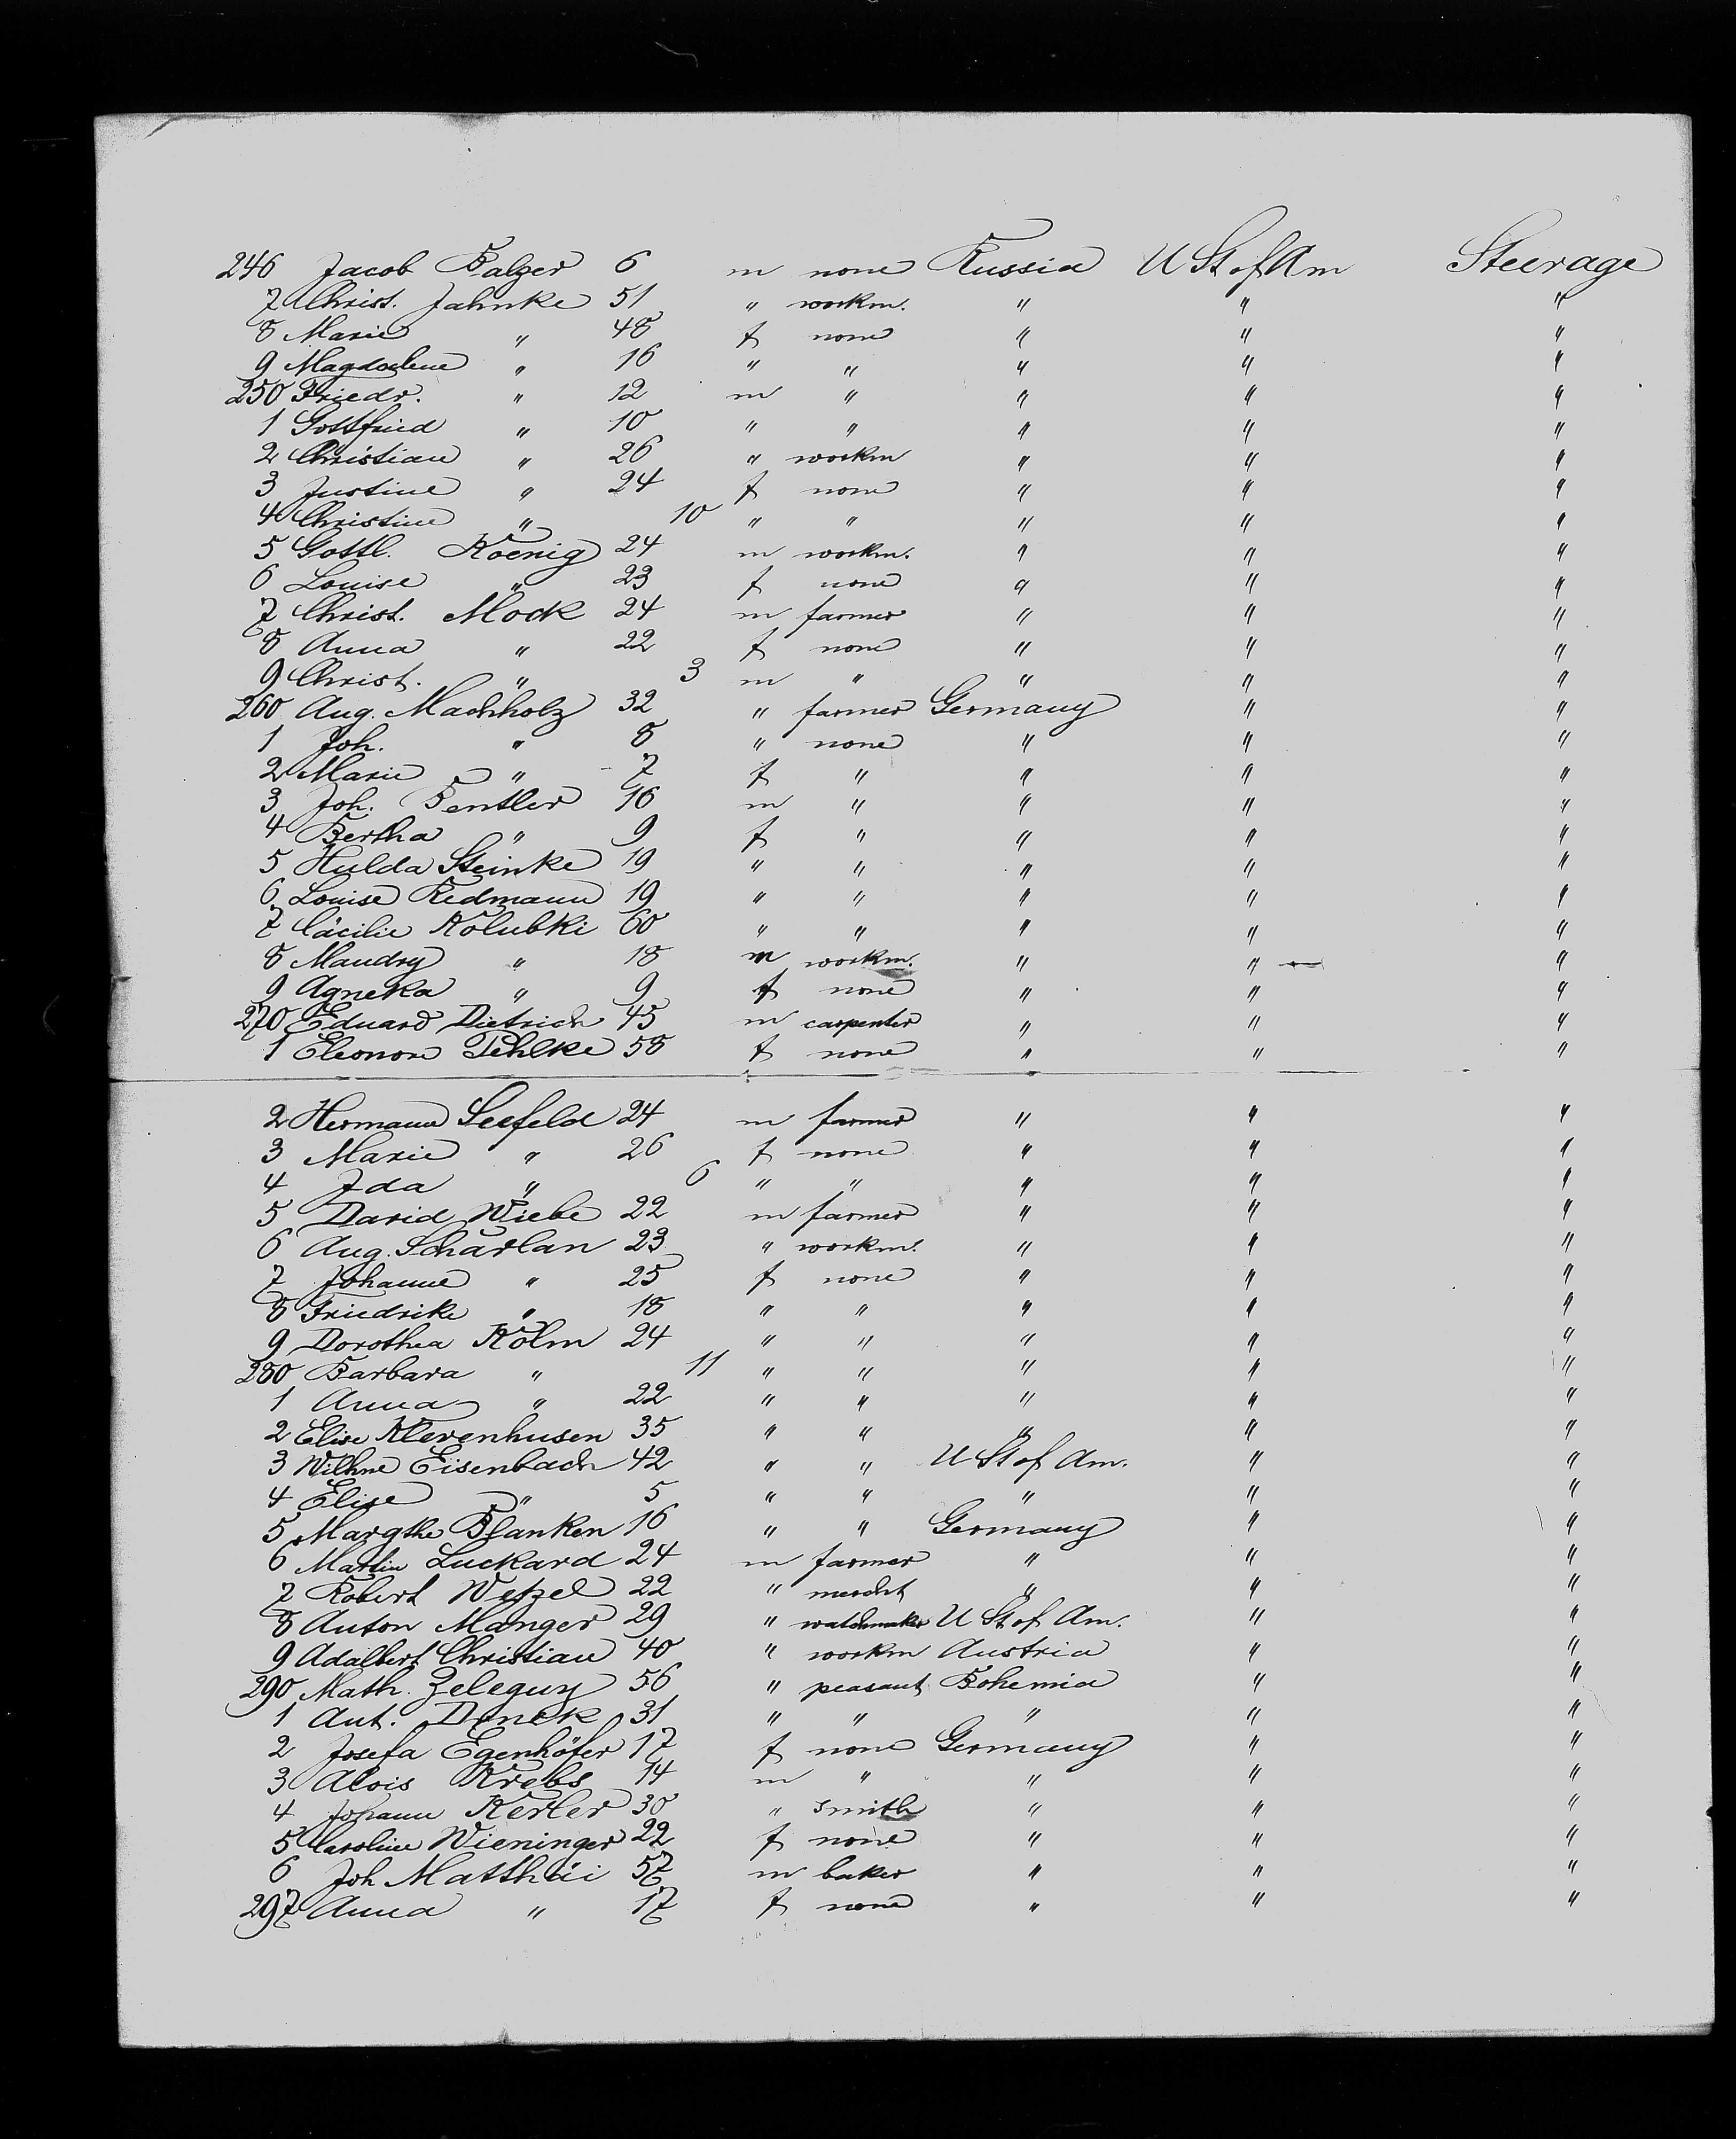 246 Jacob Balzer 6 m none Russia U St of Am Steerage
7 Christ. Jahnke 51 " workm. " " "
8 Marie " 48 f none " " "
9 Magdalene " 16 " " " " "
250 Friedr. " 12 m " " " "
1 Gottfried " 10 " " " " "
2 Christian " 26 " workm " " "
3 Justine " 24 f none " " "
4 Christine " 10 " " " " "
5 Gottl. Koenig 24 m workm. " " "
6 Louise " 23 f none " " "
7 Christ. Mock 24 m farmer " " "
8 Anna " 22 f none " " "
9 Christ. " 3 m " " " "
260 Aug. Machholz 32 " farmer Germany " "
1 Joh. " 8 " none " " "
2 Marie " 7 f " " " "
3 Joh. Bentler 16 m " " " "
4 Bertha " 9 f " " " "
5 Hulda Steinke 19 " " " " "
6 Louise Redmann 19 " " " " "
7 Cäcilie Kolubki 60 " " " " "
8 Maudry " 18 m workm. " " "
9 Agneka " 9 f none " " "
270 Eduard Dietrich 45 m carpenter " " "
1 Eleonore 58 f none " " "
2 Hermann Seefeld 24 m farmer " " "
3 Marie " 26 f none " " "
4 Ida " 6 " " " " "
5 David Wiebe 22 m farmer " " "
6 Aug. Scharlan 23 " workm. " " "
7 Johanne " 25 f none " " "
8 Friedrike " 18 " " " " "
9 Dorothea Kölm 24 " " " " "
280 Barbara " 11 " " " " "
1 Anna " 22 " " " " "
2 Elise Klevenhusen 35 " " " " "
3 Wilhne Eisenbach 42 " " U St of Am. " "
4 Elise " 5 " " " " "
5 Margthe Blanken 16 " " Germany " "
6 Martin Luckard 24 m farmer " " "
7 Robert Wetzel 22 " mercht " " "
8 Anton Manger 29 " watchmaker U St of Am. " "
9 Adalbert Christian 40 " workm Austria " "
290 Math. 56 " peasant Bohemia " "
1 Ant. 31 " " " " "
2 Josefa Egenhöfer 17 f none Germany " "
3 Alois Krebs 14 m " " " "
4 Johann Kerler 30 " smith " " "
5 Caroline Wieninger 22 f none " " "
6 Joh Matthäi 57 m baker " " "
297 Anna " 17 f none " " "